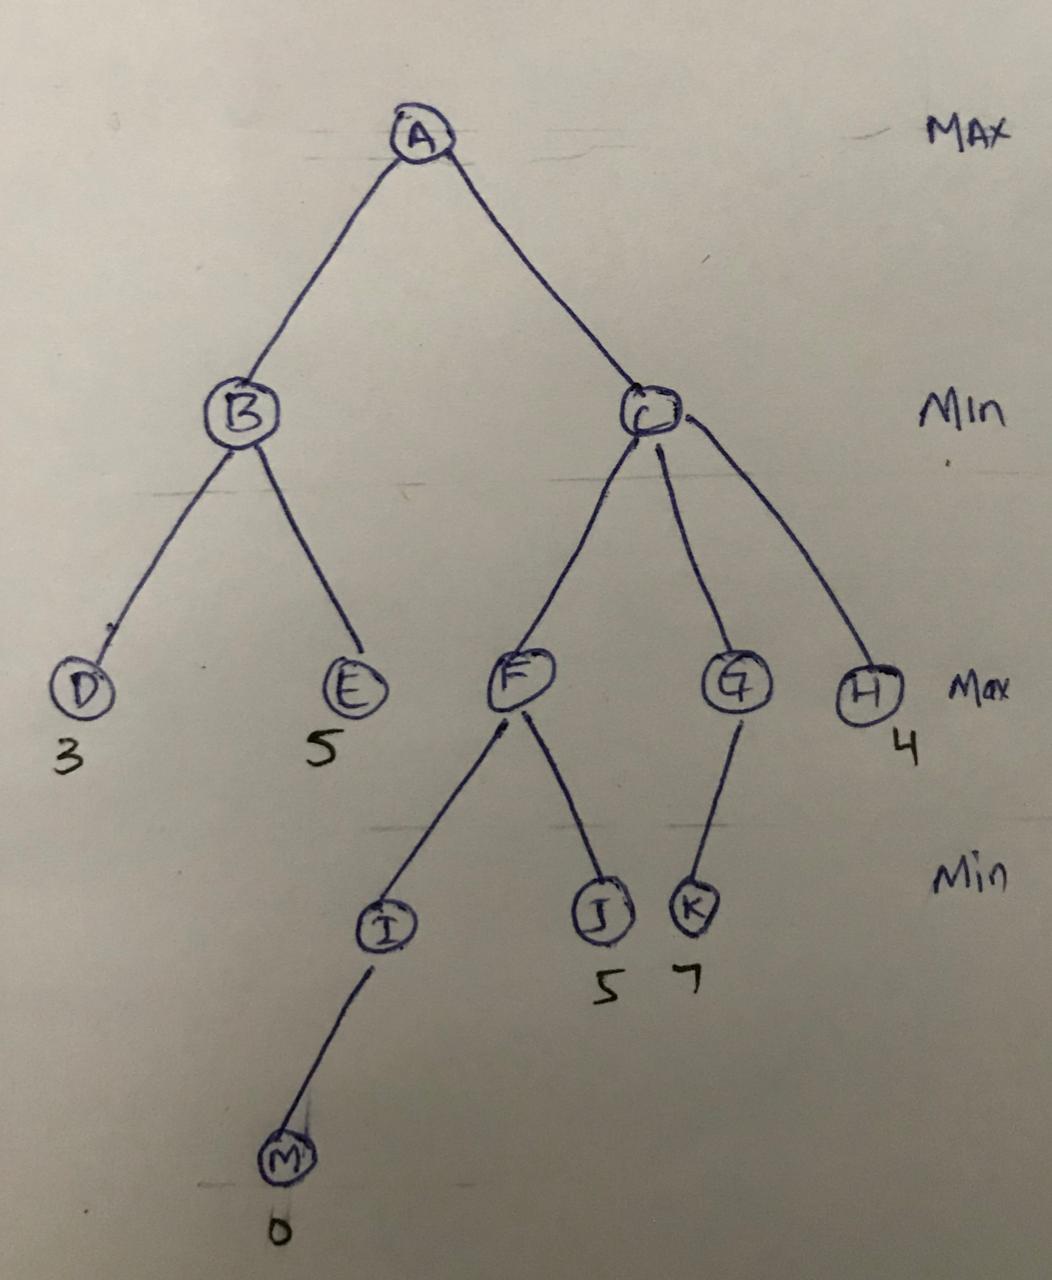 A MAX
B C Min
D E F G H Max
3 5 4
I J K Min
5 7
M
0